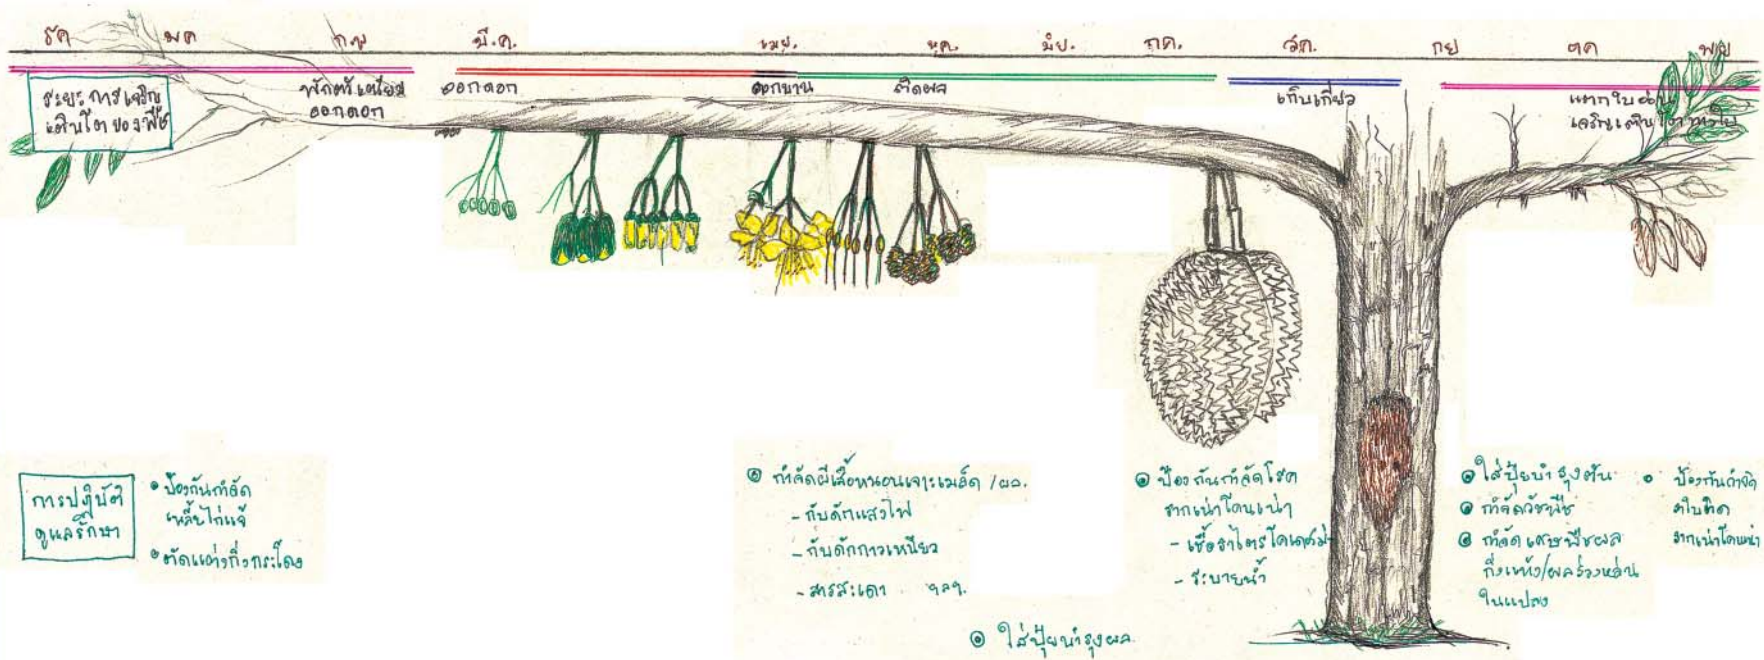 ธค มค ก.พ มี.ค. เมย. พค. มิย. กค. สค. กย ตค พย
ระยะการเจริญ
เติบโตของพืช
พักตัวเตรียม
ออกดอก
ออกดอก
ดอกบาน
ติดผล
เก็บเกี่ยว
แตกใบอ่อน
เจริญเติบโตทางใบ
การปฏิบัติ
ดูแลรักษา
ป้องกันกำจัด
เพลี้ยไก่แจ้
ตัดแต่งกิ่งกระโดง
กำจัดผีเสื้อหนอนเจาะเมล็ด/ผล.
- กับดักแสงไฟ
- กับดักกาวเหนียว
- สารสะเดา ฯลฯ.
ใส่ปุ๋ยบำรุงผล
ป้องกันกำจัดโรค
รากเน่าโคนเน่า
- เชื้อราไตรโคเดอม่า
- ระบายน้ำ
ใส่ปุ๋ยบำรุงต้น
กำจัดวัชพืช
กำจัดเศษพืชผล
กิ่งแห้ง/ผลร่วงหล่น
ในแปลง
ป้องกันกำจัด
ใบติด
รากเน่าโคนเน่า